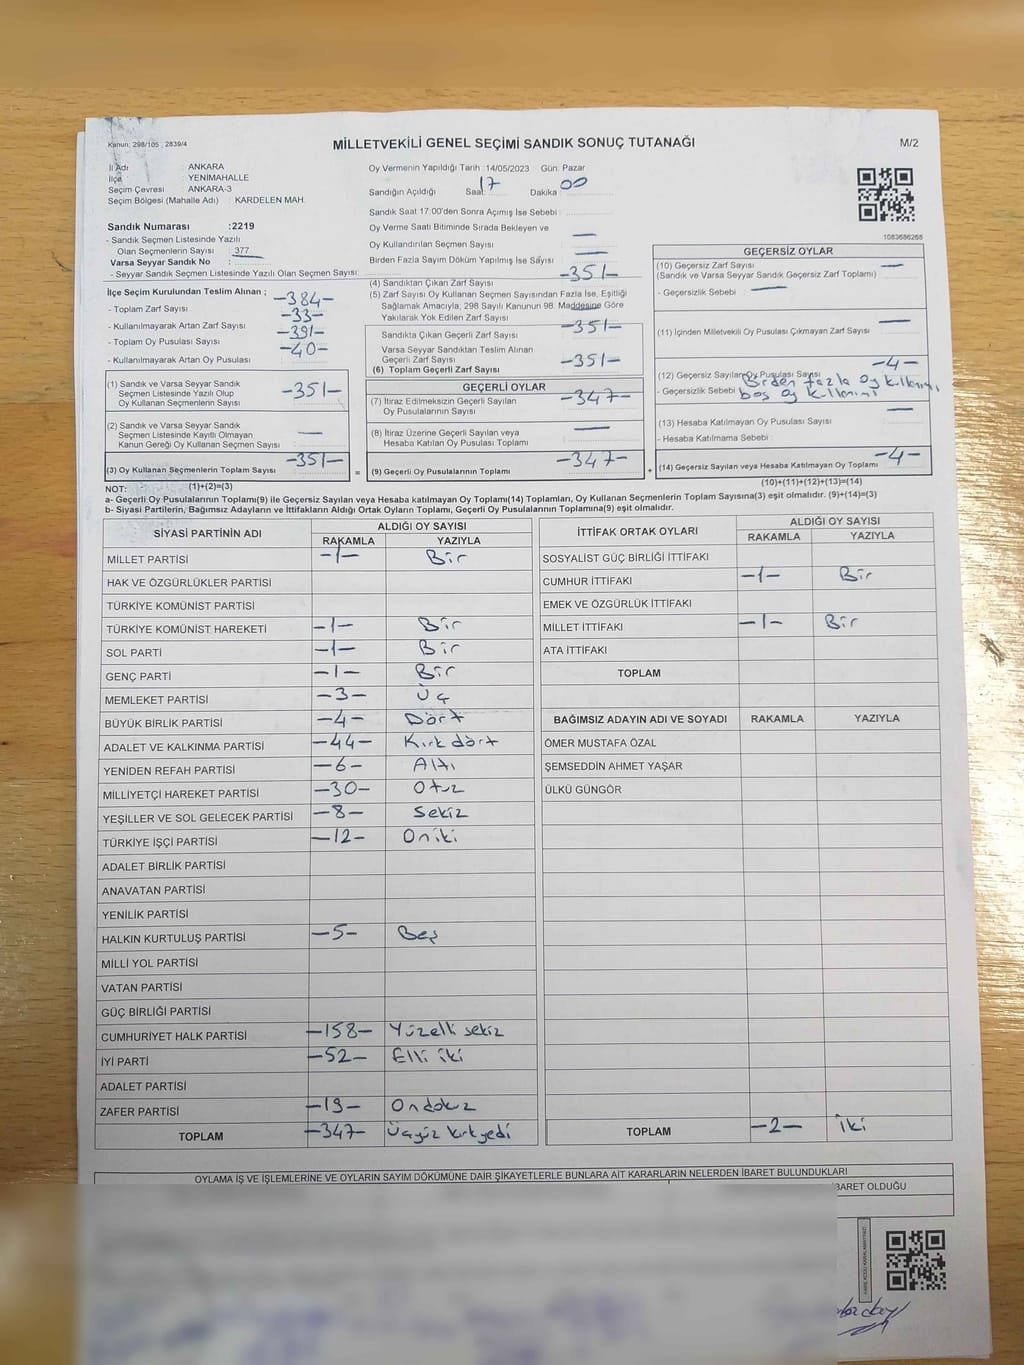 Kanun; 298/105 , 2839/4
MİLLETVEKİLİ GENEL SEÇİMİ SANDIK SONUÇ TUTANAĞI
M/2
İl Adı : ANKARA
İlçe : YENİMAHALLE
Seçim Çevresi : ANKARA-3
Seçim Bölgesi (Mahalle Adı) : KARDELEN MAH.
Oy Vermenin Yapıldığı Tarih :14/05/2023 Gün: Pazar
Sandığın Açıldığı Saat: 17 Dakika 00
Sandık Saat 17:00'den Sonra Açımış İse Sebebi :
Oy Verme Saati Bitiminde Sırada Bekleyen ve
Oy Kullandırılan Seçmen Sayısı —
Birden Fazla Sayım Döküm Yapılmış İse Sayısı —
1083686268
Sandık Numarası :2219
- Sandık Seçmen Listesinde Yazılı
Olan Seçmenlerin Sayısı : 377
Varsa Seyyar Sandık No :
- Seyyar Sandık Seçmen Listesinde Yazılı Olan Seçmen Sayısı:
İlçe Seçim Kurulundan Teslim Alınan ;
- Toplam Zarf Sayısı -384-
- Kullanılmayarak Artan Zarf Sayısı -33-
- Toplam Oy Pusulası Sayısı -391-
- Kullanılmayarak Artan Oy Pusulası -40-
(1) Sandık ve Varsa Seyyar Sandık
Seçmen Listesinde Yazılı Olup
Oy Kullanan Seçmenlerin Sayısı -351-
(2) Sandık ve Varsa Seyyar Sandık
Seçmen Listesinde Kayıtlı Olmayan
Kanun Gereği Oy Kullanan Seçmen Sayısı —
(3) Oy Kullanan Seçmenlerin Toplam Sayısı -351-
=
(4) Sandıktan Çıkan Zarf Sayısı -351-
(5) Zarf Sayısı Oy Kullanan Seçmen Sayısından Fazla İse, Eşitliği
Sağlamak Amacıyla; 298 Sayılı Kanunun 98. Maddesine Göre
Yakılarak Yok Edilen Zarf Sayısı —
Sandıkta Çıkan Geçerli Zarf Sayısı -351-
Varsa Seyyar Sandıktan Teslim Alınan
Geçerli Zarf Sayısı
(6) Toplam Geçerli Zarf Sayısı -351-
GEÇERLİ OYLAR
(7) İtiraz Edilmeksizin Geçerli Sayılan
Oy Pusulasının Sayısı -347-
(8) İtiraz Üzerine Geçerli Sayılan veya
Hesaba Katılan Oy Pusulası Toplamı —
(9) Geçerli Oy Pusulalarının Toplamı -347-
+
GEÇERSİZ OYLAR
(10) Geçersiz Zarf Sayısı —
(Sandık ve Varsa Seyyar Sandık Geçersiz Zarf Toplamı)
- Geçersizlik Sebebi —
(11) İçinden Milletvekili Oy Pusulası Çıkmayan Zarf Sayısı —
(12) Geçersiz Sayılan Oy Pusulası Sayısı -4-
- Geçersizlik Sebebi Birden fazla oy kullanımı,
boş oy kullanımı
(13) Hesaba Katılmayan Oy Pusulası Sayısı —
- Hesaba Katılmama Sebebi :
(14) Geçersiz Sayılan veya Hesaba Katılmayan Oy Toplamı -4-
NOT: (1)+(2)=(3)
(10)+(11)+(12)+(13)=(14)
a- Geçerli Oy Pusulalarının Toplamı(9) ile Geçersiz Sayılan veya Hesaba katılmayan Oy Toplamı(14) Toplamları, Oy Kullanan Seçmenlerin Toplam Sayısına(3) eşit olmalıdır. (9)+(14)=(3)
b- Siyasi Partilerin, Bağımsız Adayların ve İttifakların Aldığı Ortak Oyların Toplamı, Geçerli Oy Pusulalarının Toplamına(9) eşit olmalıdır.
SİYASİ PARTİNİN ADI
ALDIĞI OY SAYISI
RAKAMLA YAZIYLA
MİLLET PARTİSİ -1- Bir
HAK VE ÖZGÜRLÜKLER PARTİSİ
TÜRKİYE KOMÜNİST PARTİSİ
TÜRKİYE KOMÜNİST HAREKETİ -1- Bir
SOL PARTİ -1- Bir
GENÇ PARTİ -1- Bir
MEMLEKET PARTİSİ -3- Üç
BÜYÜK BİRLİK PARTİSİ -4- Dört
ADALET VE KALKINMA PARTİSİ -44- Kırk dört
YENİDEN REFAH PARTİSİ -6- Altı
MİLLİYETÇİ HAREKET PARTİSİ -30- Otuz
YEŞİLLER VE SOL GELECEK PARTİSİ -8- Sekiz
TÜRKİYE İŞÇİ PARTİSİ -12- Oniki
ADALET BİRLİK PARTİSİ
ANAVATAN PARTİSİ
YENİLİK PARTİSİ
HALKIN KURTULUŞ PARTİSİ -5- Beş
MİLLİ YOL PARTİSİ
VATAN PARTİSİ
GÜÇ BİRLİĞİ PARTİSİ
CUMHURİYET HALK PARTİSİ -158- Yüzelli sekiz
İYİ PARTİ -52- Elli iki
ADALET PARTİSİ
ZAFER PARTİSİ -19- Ondokuz
TOPLAM -347- Üçyüz kırkyedi
İTTİFAK ORTAK OYLARI
ALDIĞI OY SAYISI
RAKAMLA YAZIYLA
SOSYALİST GÜÇ BİRLİĞİ İTTİFAKI
CUMHUR İTTİFAKI -1- Bir
EMEK VE ÖZGÜRLÜK İTTİFAKI
MİLLET İTTİFAKI -1- Bir
ATA İTTİFAKI
TOPLAM
BAĞIMSIZ ADAYIN ADI VE SOYADI RAKAMLA YAZIYLA
ÖMER MUSTAFA ÖZAL
ŞEMSEDDİN AHMET YAŞAR
ÜLKÜ GÜNGÖR
TOPLAM -2- İki
OYLAMA İŞ VE İŞLEMLERİNE VE OYLARIN SAYIM DÖKÜMÜNE DAİR ŞİKAYETLERLE BUNLARA AİT KARARLARIN NELERDEN İBARET BULUNDUKLARI
BARET OLDUĞU